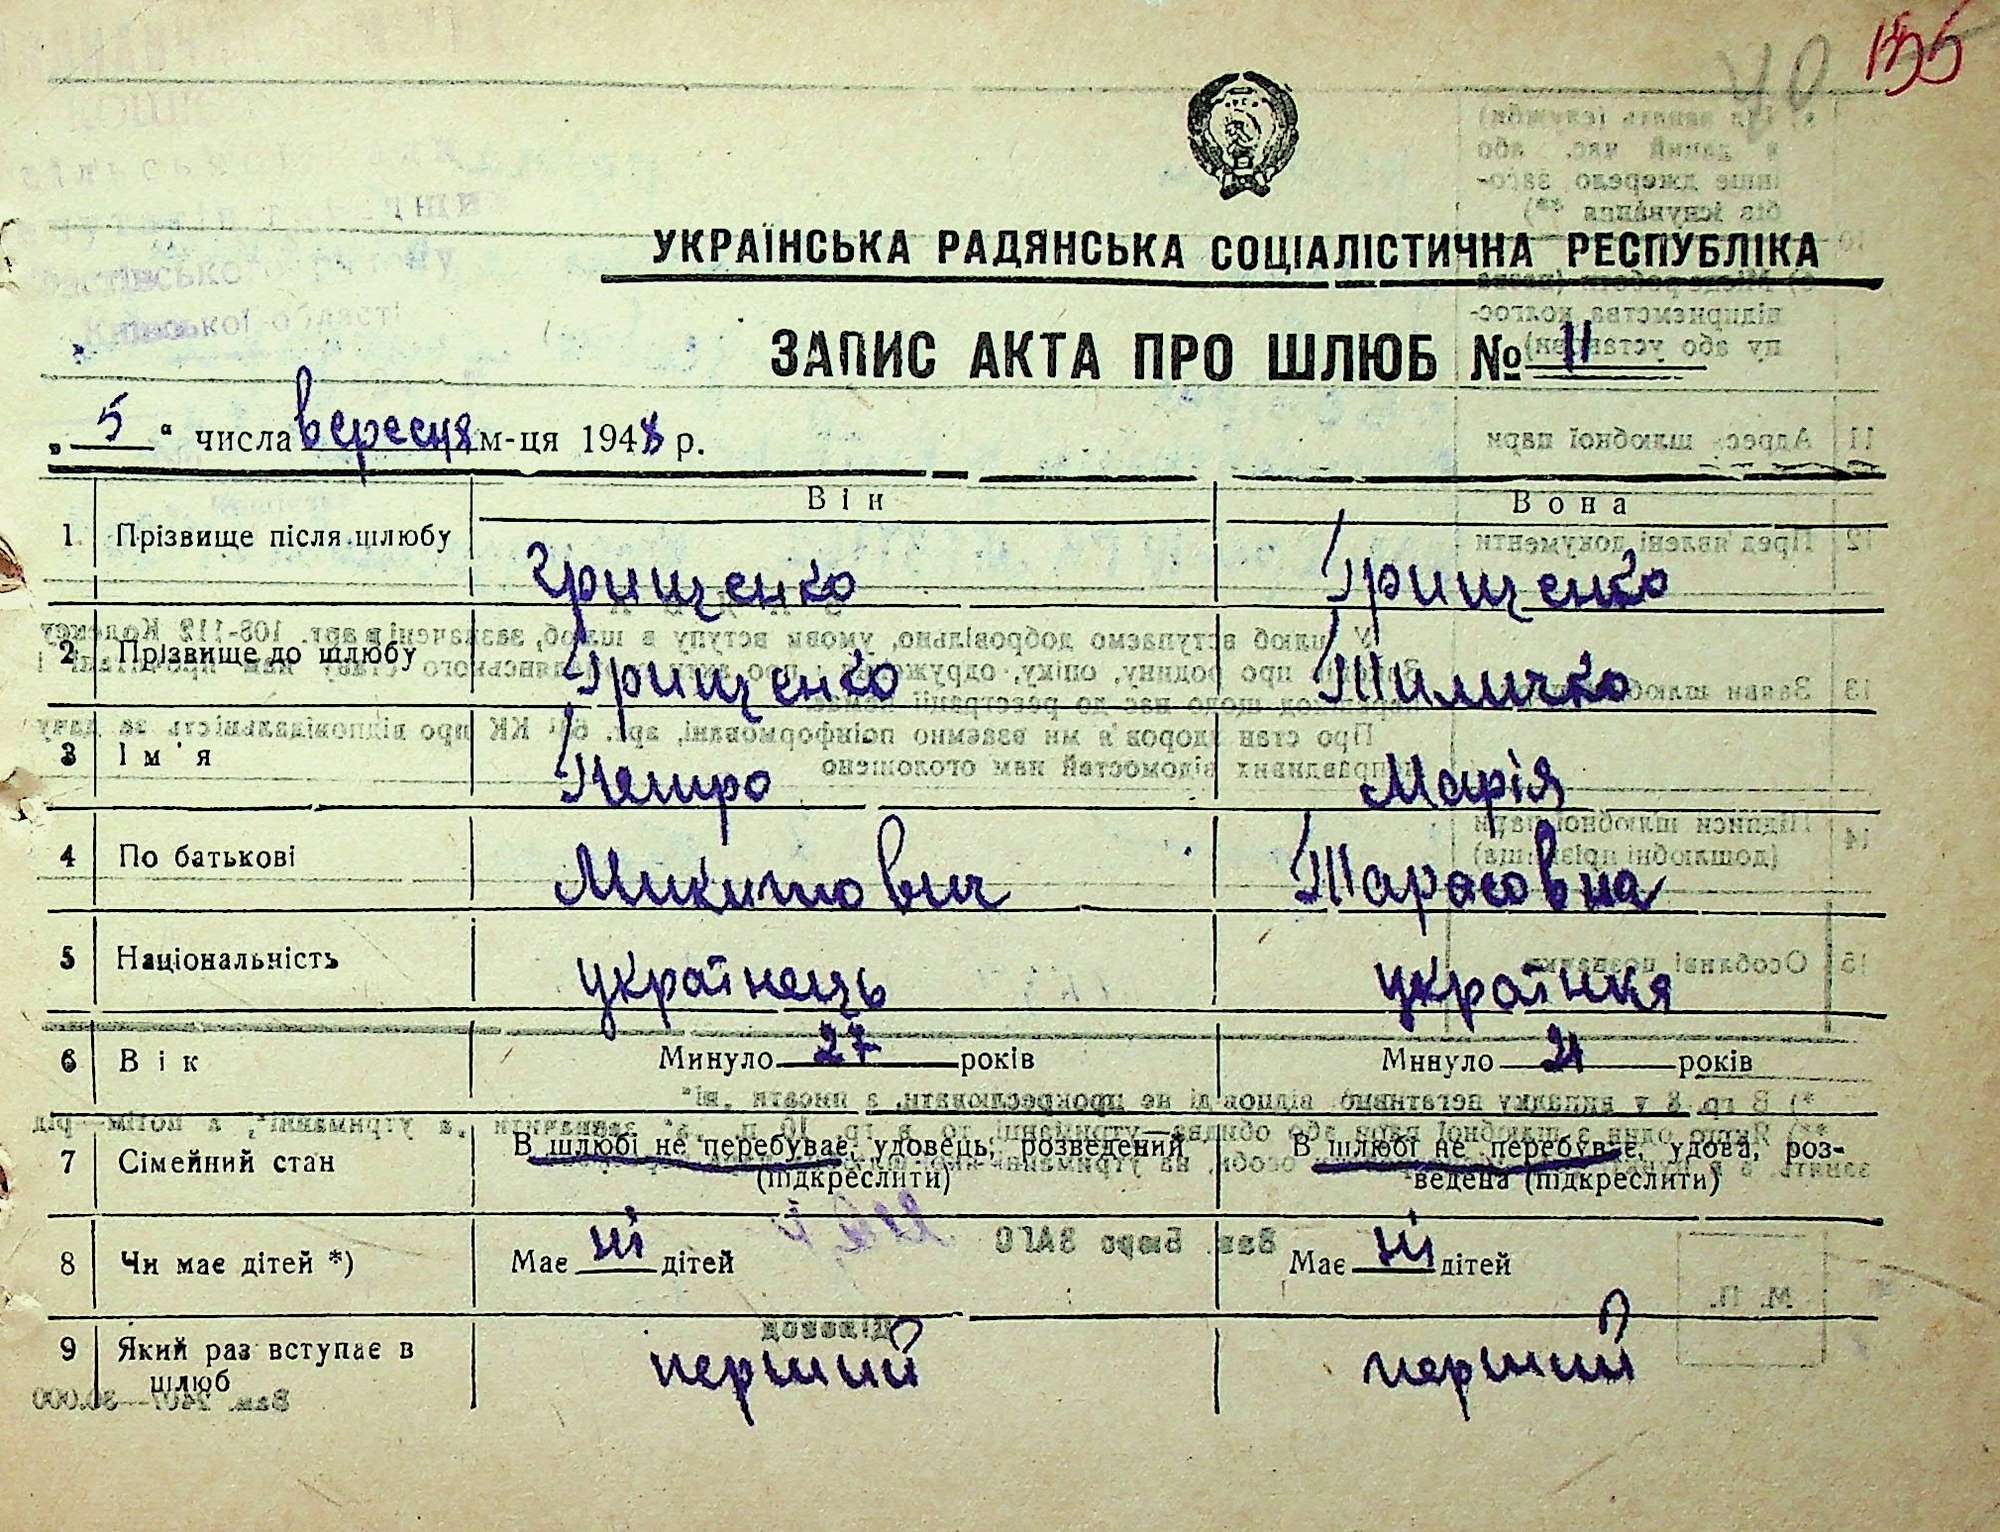 40 155
УКРАЇНСЬКА РАДЯНСЬКА СОЦІАЛІСТИЧНА РЕСПУБЛІКА
ЗАПИС АКТА ПРО ШЛЮБ № 11
„ 5 “ числа вересня м-ця 1948 р.
Він Вона
1 Прізвище після шлюбу Грищенко Грищенко
2 Прізвище до шлюбу Грищенко Тимичко
3 Ім'я Петро Марія
4 По батькові Микитович Тарасовна
5 Національність українець українка
6 Вік Минуло 27 років Минуло 21 років
7 Сімейний стан В шлюбі не перебуває, удовець, розведений В шлюбі не перебуває, удова, роз-
(підкреслити) ведена (підкреслити)
8 Чи має дітей *) Має ні дітей Має ні дітей
9 Який раз вступає в перший перший
шлюб